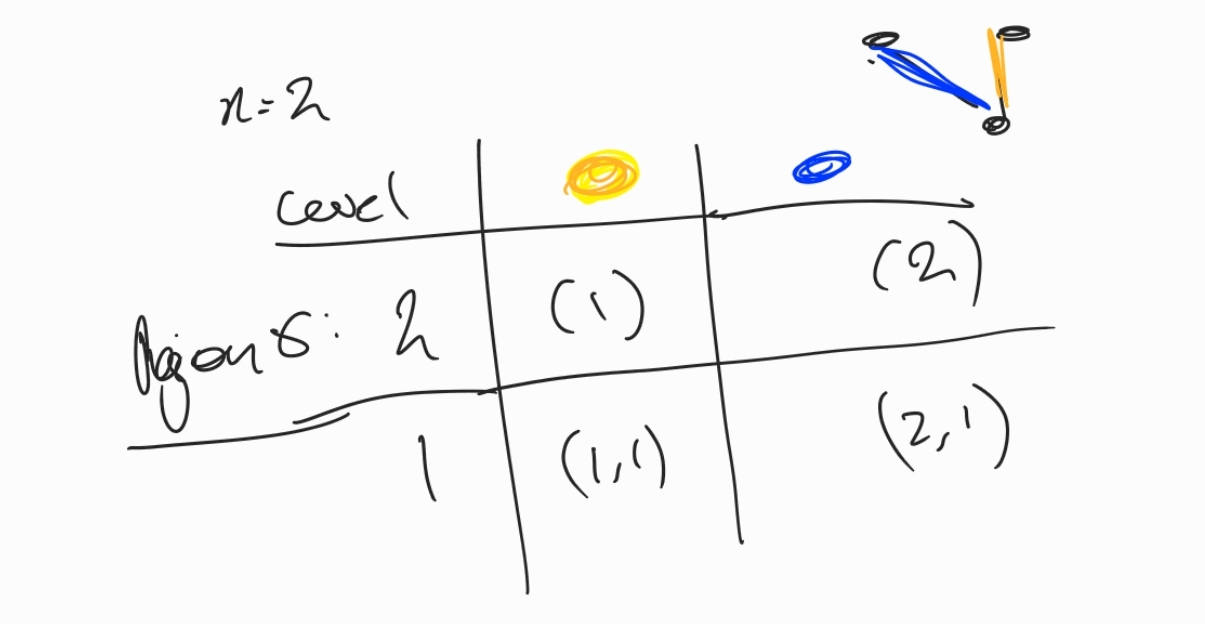 n=2
Level
Region 8: 2 (1) (2)
1 (1,1) (2,1)